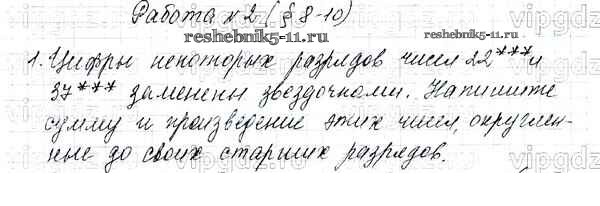 Работа №2 (§ 8-10)
reshebnik5-11.ru
reshebnik5-11.ru
1. Цифры некоторых разрядов чисел 22*** и
37*** заменены звездочками. Напишите
сумму и произведение этих чисел, округлен-
ные до своих старших разрядов.
vipgdz
vipgdz
vipgdz
vipgdz